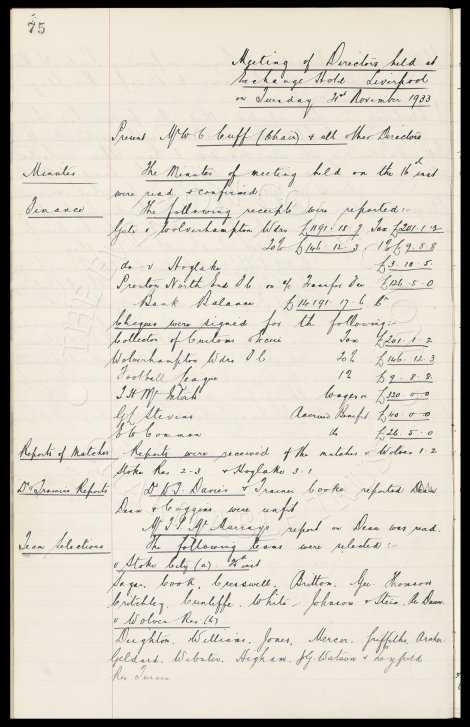 75
Meeting of Directors held at
Exchange Hotel Liverpool
on Tuesday 21st November 1933
Present Mr W. C. Cuff (Chair) & all other Directors
Minutes The Minutes of meeting held on the 16th inst
were read & confirmed.
Finance The following receipts were reported:-
Gate v Wolverhampton Wdrs £1191.18.7 Tax £201.1.2
20% £146.12.3 1% £9.8.8
do v Hoylake £3.10.5
Preston North End F.C. on a/c Transfer Fee £126.5.0
Bank Balance £14191.17.6
Cheques were signed for the following:-
Collector of Customs & Excise Tax £201.1.2
Wolverhampton Wdrs F.C. 20% £146.12.3
Football League 1% £9.8.8
Wages £320.0.0
G. Stevens Accrued Benefit £40.0.0
do £26.5.0
Reports of Matches Reports were received of the matches v Wolves 1-2
Stoke Res 2-3 & Hoylake 3-1
Dr & Trainers Reports Dr W.J. Davies & Trainer Cooke reported
Dean & Coggins were unfit
Mr T.P. McMurray's report on Dean was read.
Team Selections The following teams were selected:-
v Stoke City (a) inst
Sagar, Cook, Cresswell, Britton, Gee, Thomson
Critchley, Cunliffe, White, Johnson & Stein. Res Dunn.
v Wolves Res (h)
Deighton, Williams, Jones, Mercer, Griffiths, Archer
Geldard, Webster, Higham, J.G. Watson &
Res Turner